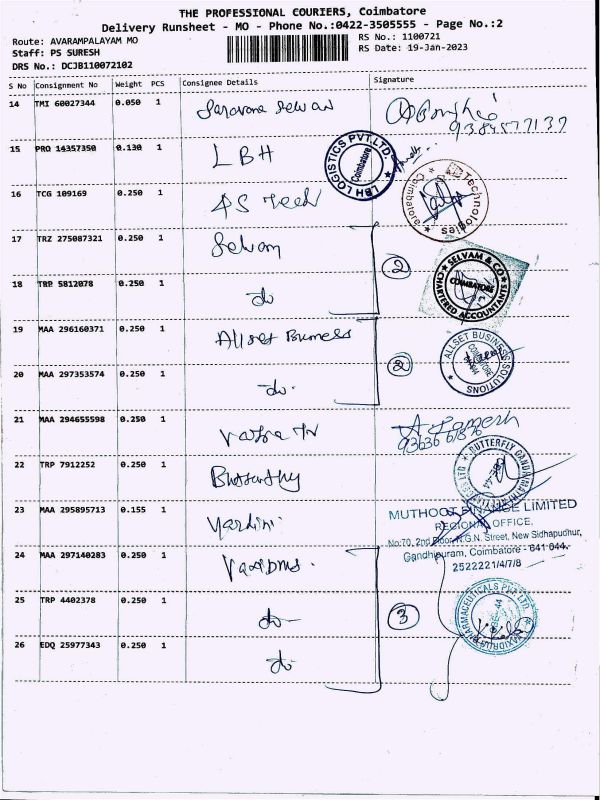 THE PROFESSIONAL COURIERS, Coimbatore
Delivery Runsheet - MO - Phone No.:0422-3505555 - Page No.:2
Route: AVARAMPALAYAM MO
RS No.: 1100721
Staff: PS SURESH
RS Date: 19-Jan-2023
DRS No.: DCJB110072102
S No Consignment No Weight PCS Consignee Details Signature
14 TMI 60027344 0.050 1
15 PRO 14357350 0.130 1 LBH
LBH LOGISTICS PVT.LTD. Coimbatore
16 TCG 109169 0.250 1 AS Tech
Technologies Coimbatore
17 TRZ 275087321 0.250 1 Selvam
2
SELVAM & CO COIMBATORE CHARTERED ACCOUNTANTS
18 TRP 5812078 0.250 1 do
19 MAA 296160371 0.250 1 Allset Business
2
ALLSET BUSINESS SOLUTIONS
20 MAA 297353574 0.250 1 do
21 MAA 294655598 0.250 1
22 TRP 7912252 0.250 1 Butterfly
BUTTERFLY
23 MAA 295895713 0.155 1
MUTHOOT FINANCE LIMITED
REGIONAL OFFICE,
No:70, 2nd Floor, N.G.N. Street, New Sidhapudhur,
Gandhipuram, Coimbatore - 641 044.
2522221/4/7/8
24 MAA 297140283 0.250 1
25 TRP 4402378 0.250 1 do
3
PHARMACEUTICALS PVT LTD
26 EDQ 25977343 0.250 1 do